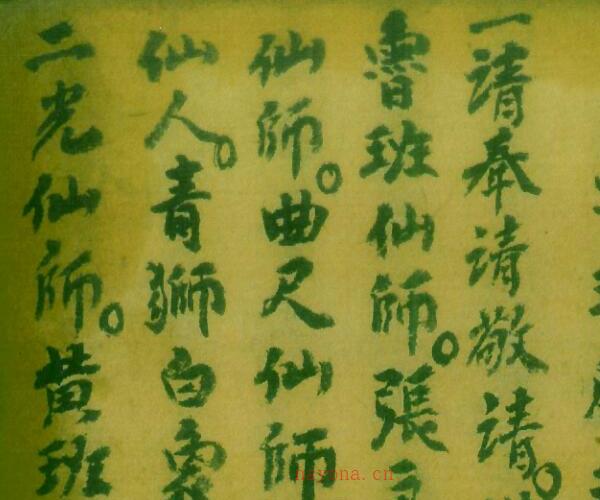 一請奉請敬請。
魯班仙師。張
仙師。曲尺仙師
仙人。青獅白
二光仙師。黃班
nayona.cn